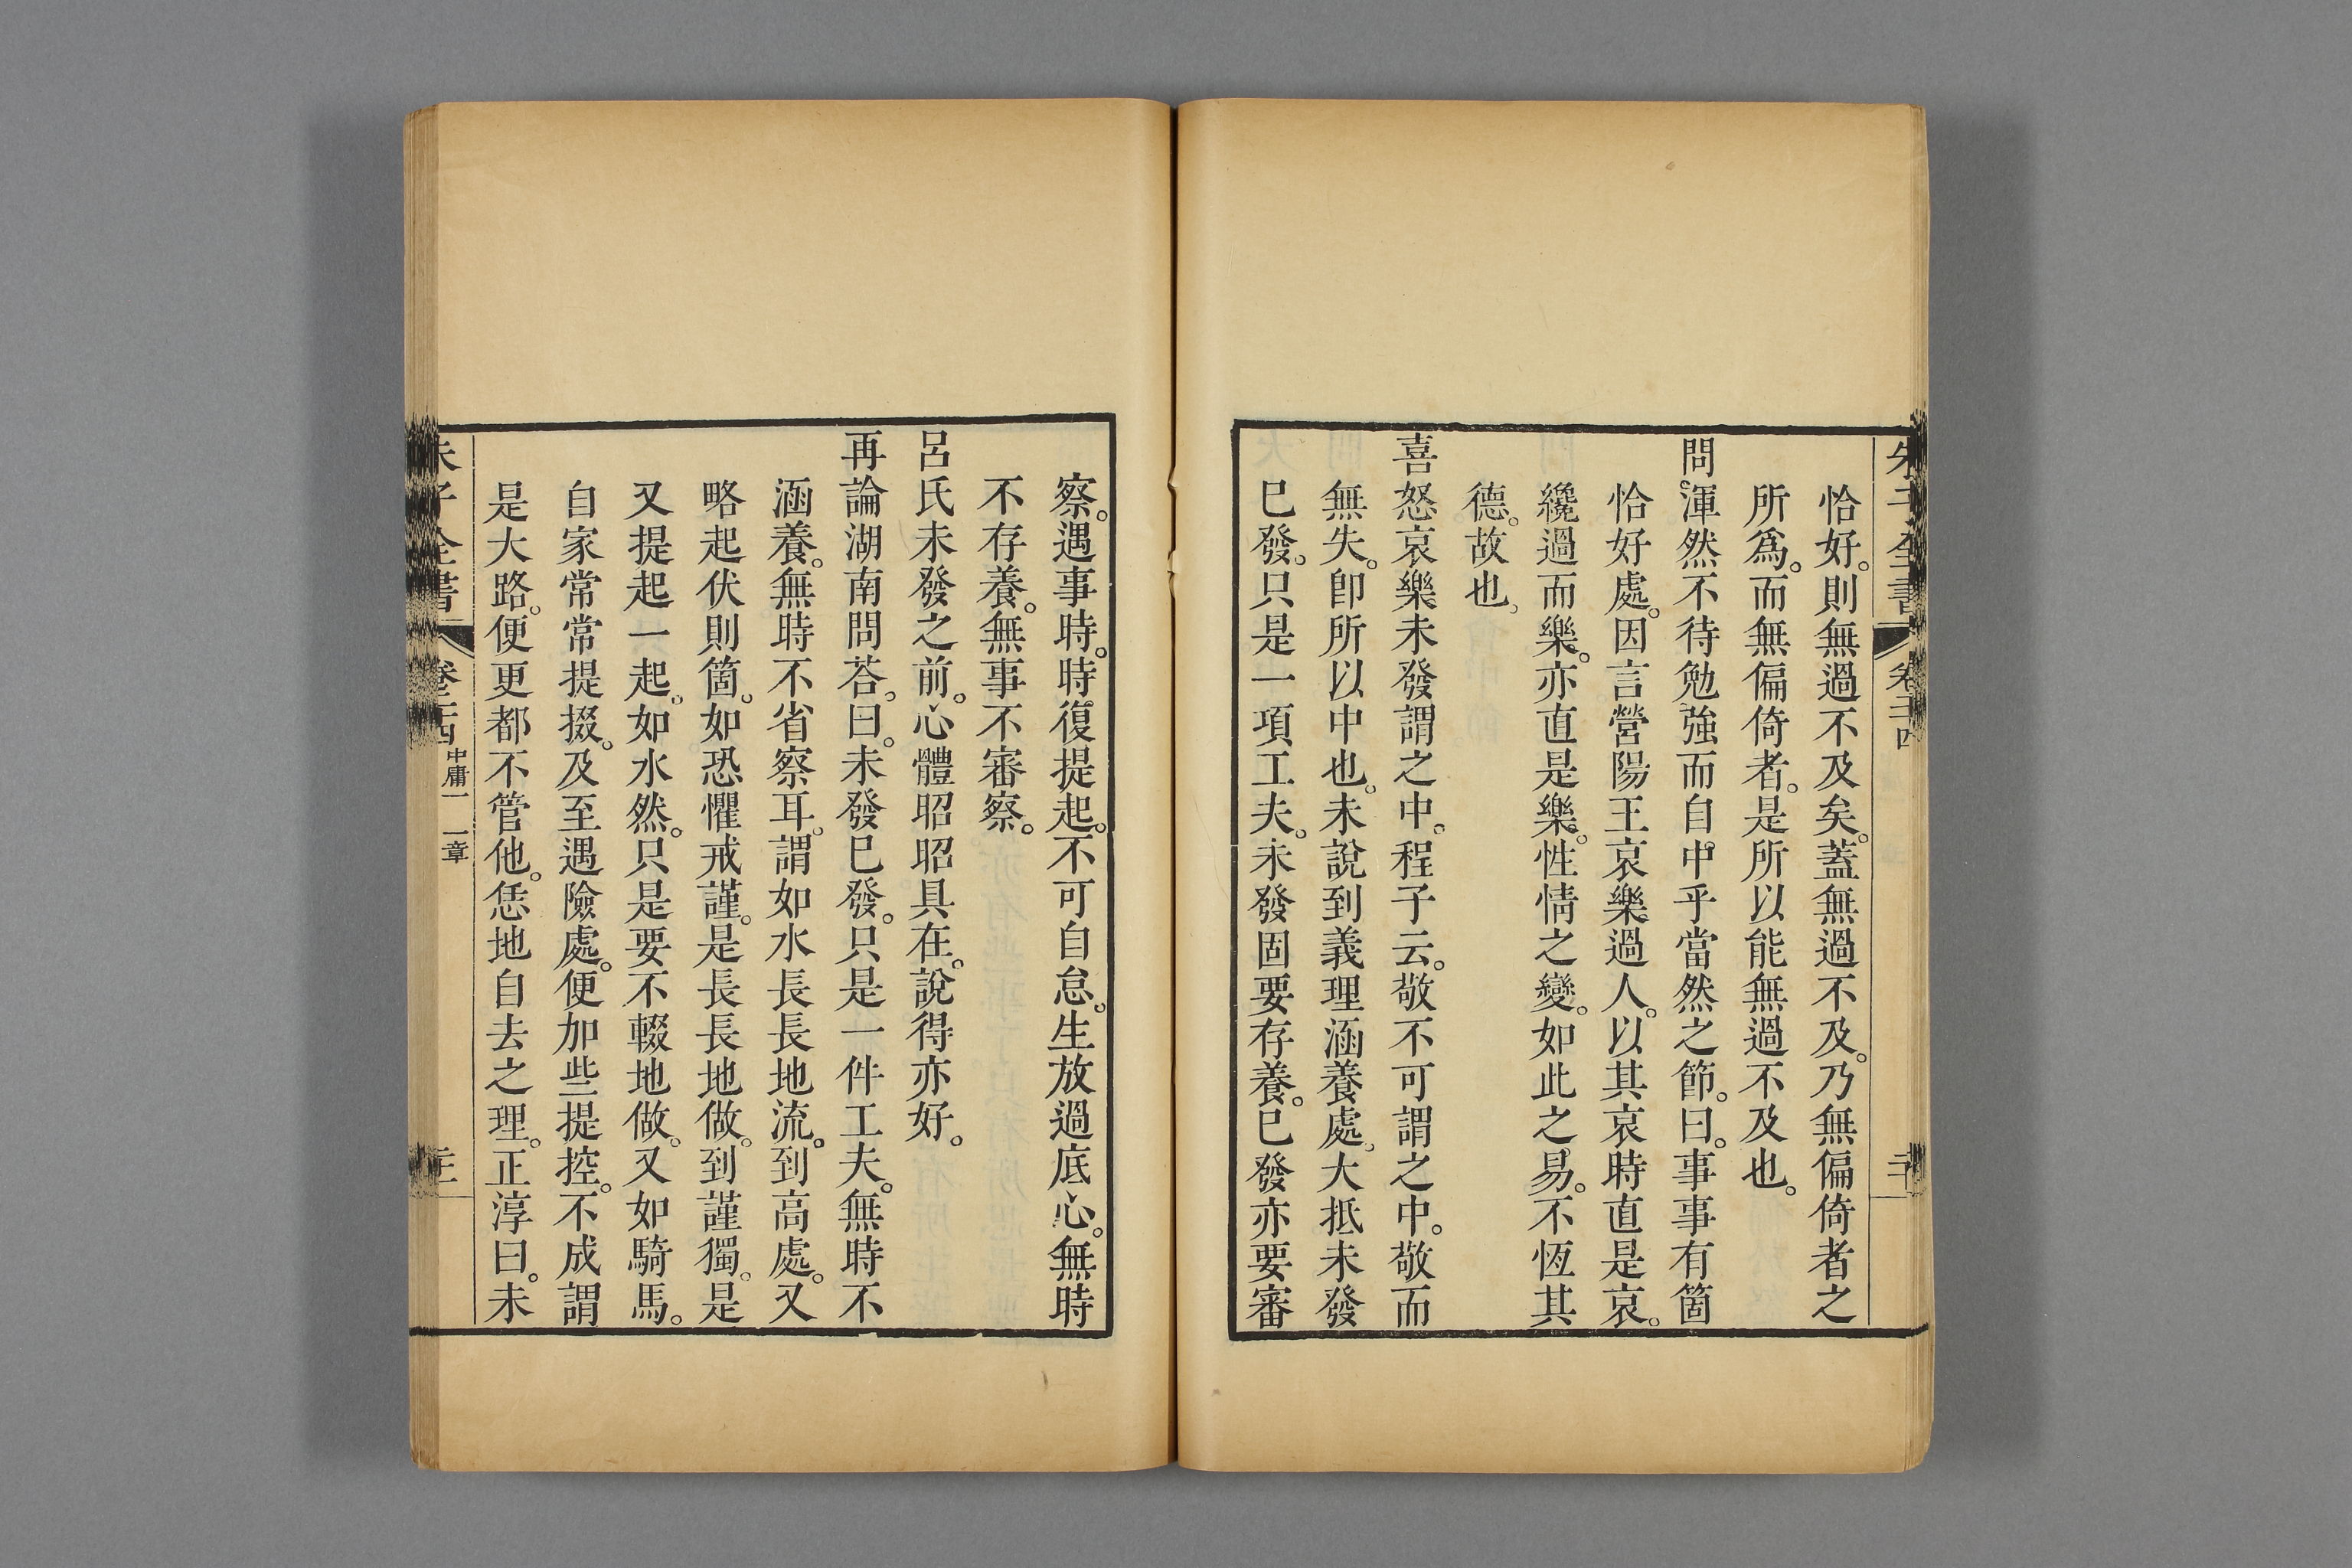 朱子全書 卷二十四
恰好。則無過不及矣。蓋無過不及。乃無偏倚者之
所爲。而無偏倚者。是所以能無過不及也。
問渾然不待勉強而自中乎當然之節。曰。事事有箇
恰好處。因言營陽王哀樂過人。以其哀時直是哀。
纔過而樂。亦直是樂。性情之變。如此之易。不恆其
德。故也。
喜怒哀樂未發謂之中。程子云。敬不可謂之中。敬而
無失。卽所以中也。未說到義理涵養處。大抵未發
已發。只是一項工夫。未發固要存養。已發亦要審
察。遇事時。時復提起。不可自怠。生放過底心。無時
不存養。無事不審察。
呂氏未發之前。心體昭昭具在。說得亦好。
再論湖南問荅。曰。未發已發。只是一件工夫。無時不
涵養。無時不省察耳。謂如水長長地流。到高處。又
略起伏則箇。如恐懼戒謹。是長長地做。到謹獨。是
又提起一起。如水然。只是要不輟地做。又如騎馬。
自家常常提掇。及至遇險處。便加些提控。不成謂
是大路。便更都不管他。恁地自去之理。正淳曰。未
朱子全書 卷二十四 中庸一 一章